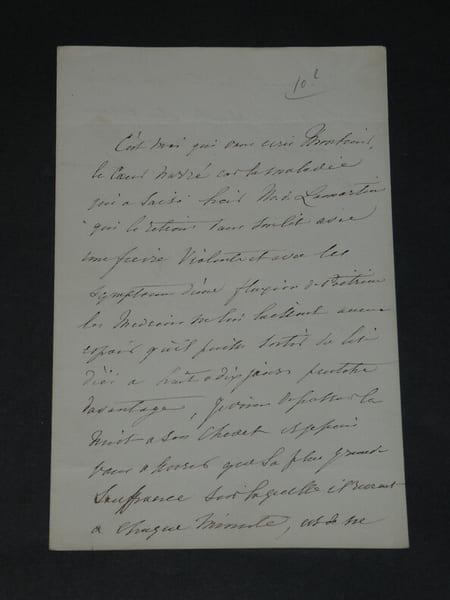 10.
C'est moi qui vous écris Monsieur,
le cœur navré car la maladie
qui a saisi hier Mr de Lamartine
qui le retient dans son lit avec
une fièvre violente et avec les
symptomes d'une fluxion de Poitrine
les Medecins ne lui laissent aucun
espoir qu'il puisse sortir de lit
d'ici a huit a dix jours peutetre
davantage, je viens de passer la
nuit a son chevet et je puis
vous que sa plus grande
souffrance sur laquelle il revient
a chaque minute, est de ne